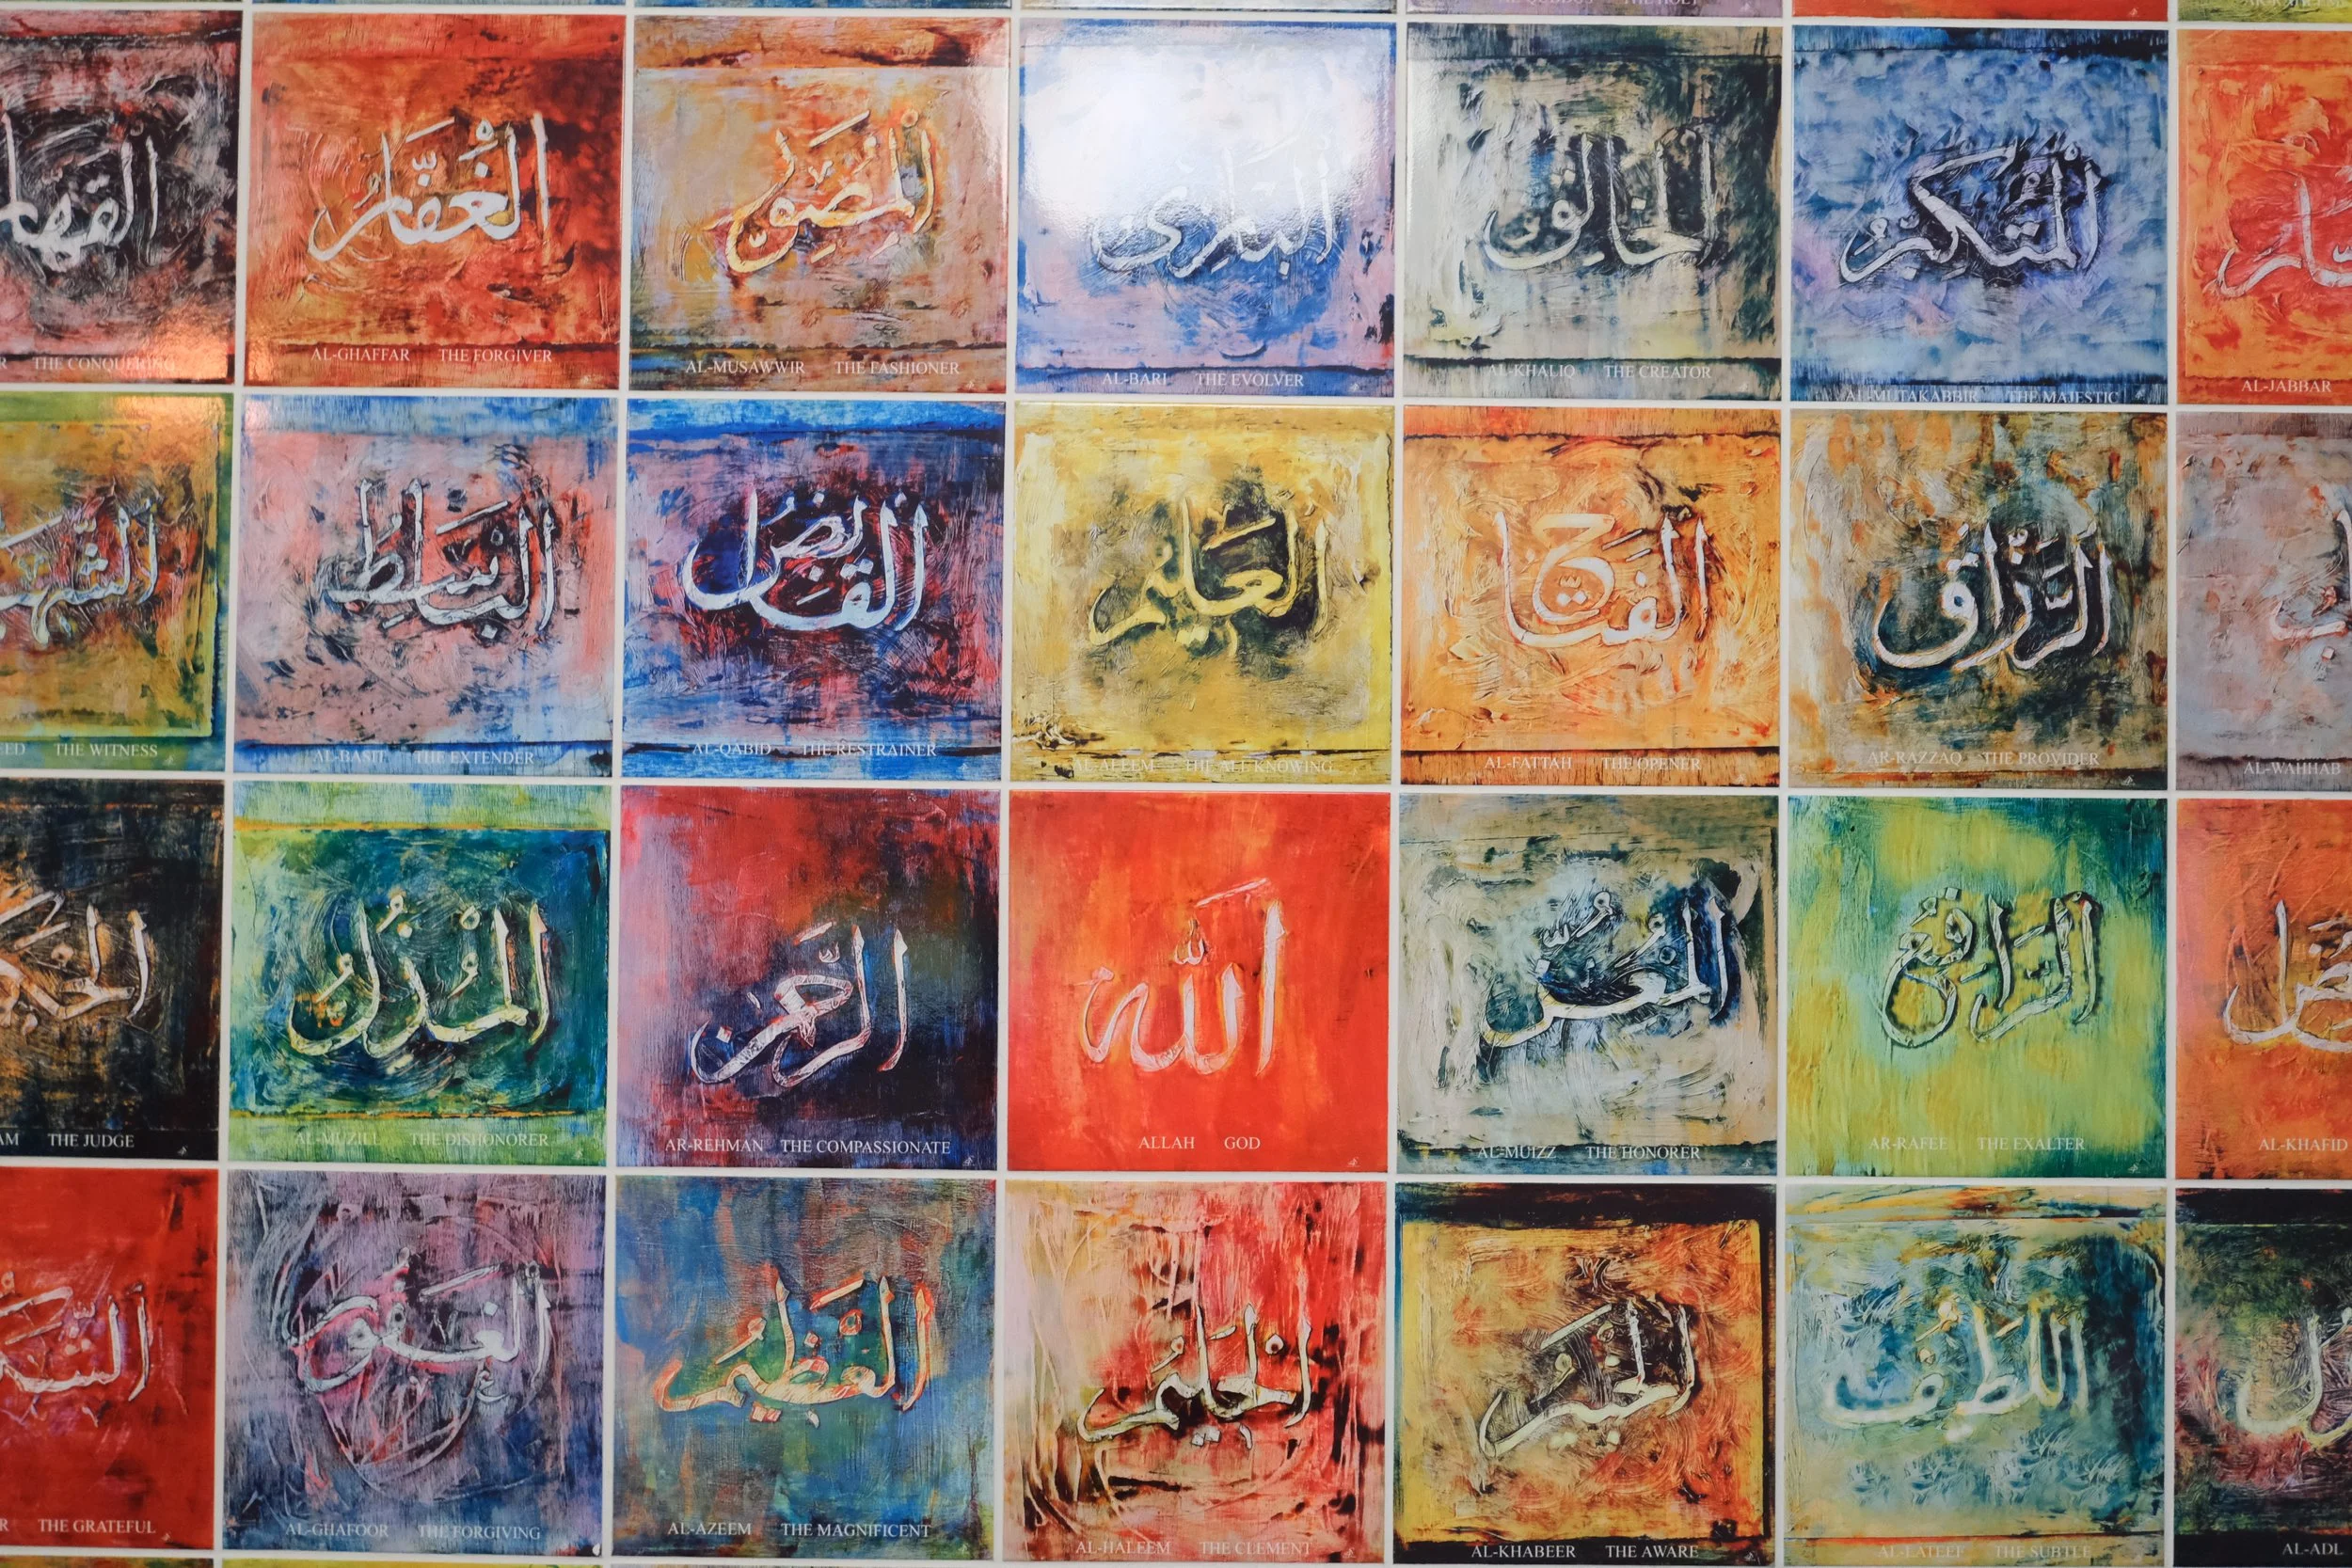 AL-QUDDUS THE HOLY
القهار
R THE CONQUERING
الْغَفَّارُ
AL-GHAFFAR THE FORGIVER
الْمُصَوِّرُ
AL-MUSAWWIR THE FASHIONER
البارئ
AL-BARI THE EVOLVER
الخالق
AL-KHALIQ THE CREATOR
الْمُتَكَبِّرُ
AL-MUTAKABBIR THE MAJESTIC
AL-JABBAR
EED THE WITNESS
الْبَاسِطُ
AL-BASIT THE EXTENDER
الْقَابِضُ
AL-QABID THE RESTRAINER
الْعَلِيمُ
AL-ALEEM THE ALL KNOWING
الْفَتَّاحُ
AL-FATTAH THE OPENER
الرَّزَّاقُ
AR-RAZZAQ THE PROVIDER
AL-WAHHAB
AM THE JUDGE
الْمُذِلُّ
AL-MUZILL THE DISHONORER
الرَّحْمَن
AR-REHMAN THE COMPASSIONATE
اللَّه
ALLAH GOD
الْمُعِزُّ
AL-MUIZZ THE HONORER
الرَّافِعُ
AR-RAFEE THE EXALTER
AL-KHAFID
R THE GRATEFUL
الْغَفُورُ
AL-GHAFOOR THE FORGIVING
الْعَظِيمُ
AL-AZEEM THE MAGNIFICENT
الْحَلِيمُ
AL-HALEEM THE CLEMENT
الْخَبِيرُ
AL-KHABEER THE AWARE
اللَّطِيفُ
AL-LATEEF THE SUBTLE
AL-ADL